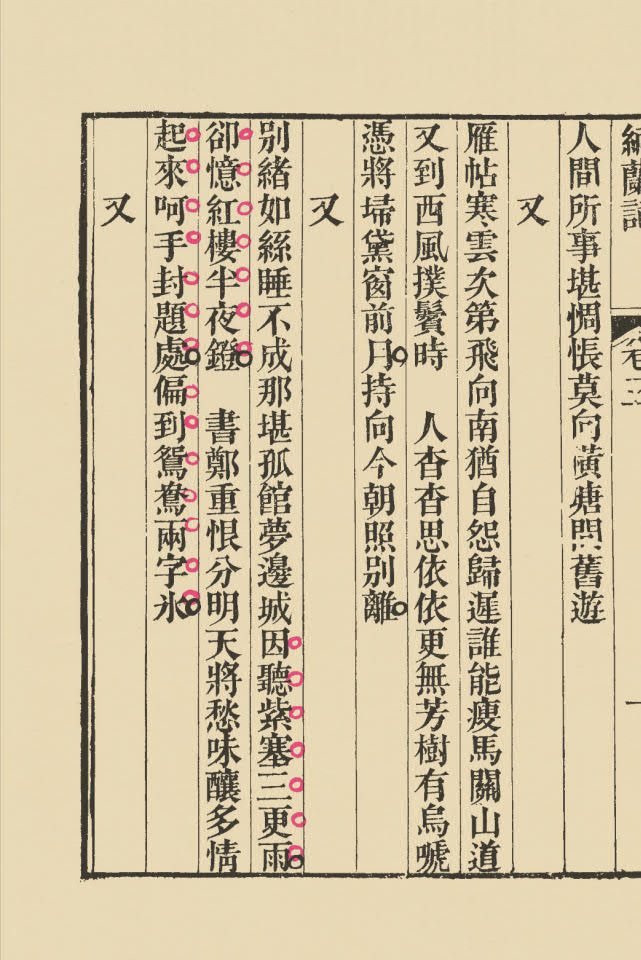 納蘭詞
人間所事堪惆悵莫向橫塘問舊遊
又
雁帖寒雲次第飛向南猶自怨歸遲誰能瘦馬關山道
又到西風撲鬢時　人杳杳思依依更無芳樹有烏嗁
憑將埽黛窗前月持向今朝照别離
又
别緒如絲睡不成那堪孤館夢邊城因聽紫塞三更雨
卻憶紅樓半夜鐙　書鄭重恨分明天將愁味釀多情
起來呵手封題處偏到鴛鴦兩字氷
又